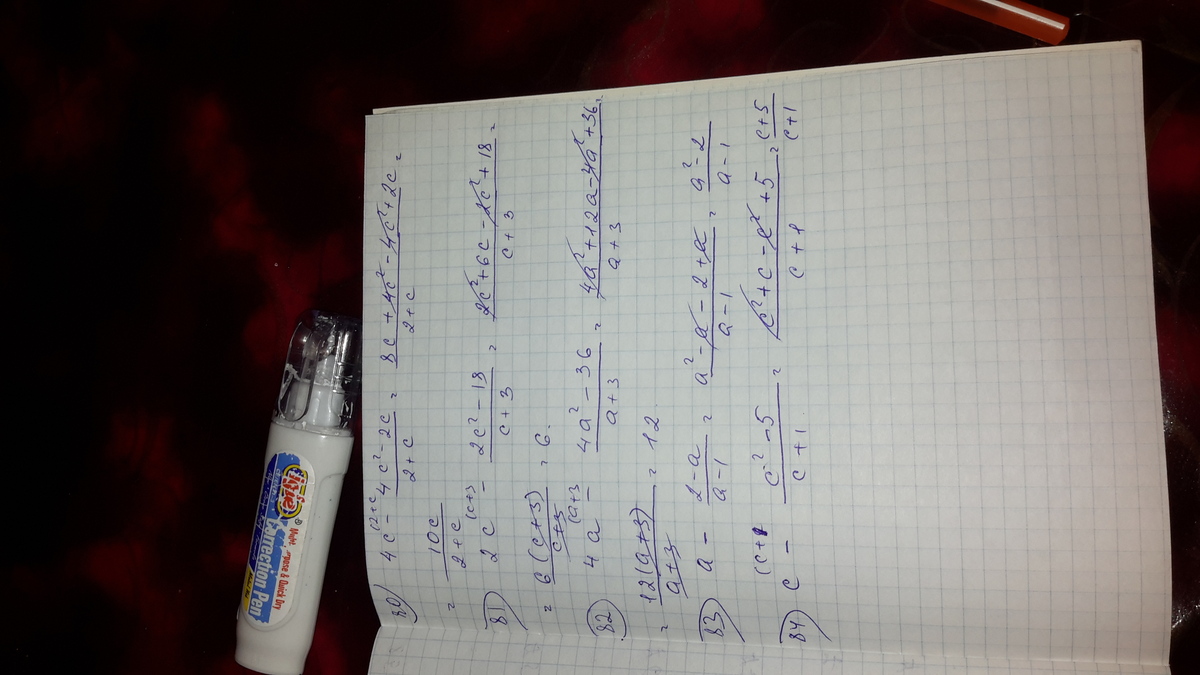 80) 4c^(2+c - (4c² - 2c)/(2+c) = (8c + 4c² - 4c² + 2c)/(2+c) =
= 10c/(2+c)
81) 2c^(c+3 - (2c² - 18)/(c+3) = (2c² + 6c - 2c² + 18)/(c+3) =
= 6(c+3)/(c+3) = 6.
82) 4a^(a+3 - (4a² - 36)/(a+3) = (4a² + 12a - 4a² + 36)/(a+3) =
= 12(a+3)/(a+3) = 12.
83) a - (2-a)/(a-1) = (a² - a - 2 + a)/(a-1) = (a² - 2)/(a-1)
84) c^(c+1 - (c² - 5)/(c+1) = (c² + c - c² + 5)/(c+1) = (c+5)/(c+1)
Correction Pen